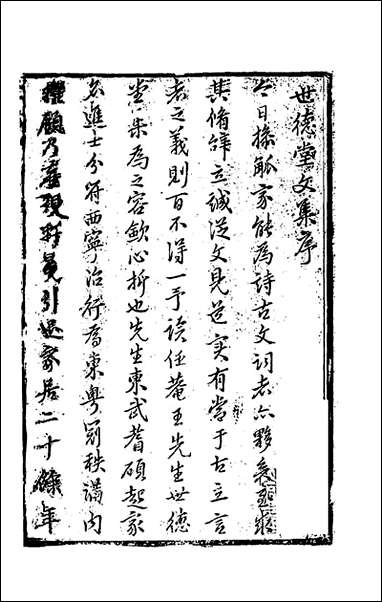 世德堂文集序
今日操觚家能為詩古文詞者亦夥矣
其脩辭立誠從文見道實有當于古立言
者之義則百不得一予讀任菴王先生世德
堂集為之斂心折也先生東武耆碩起家
名進士分符西寧治行為東粵冠秩滿内
擢顧乃引退家居二十餘年